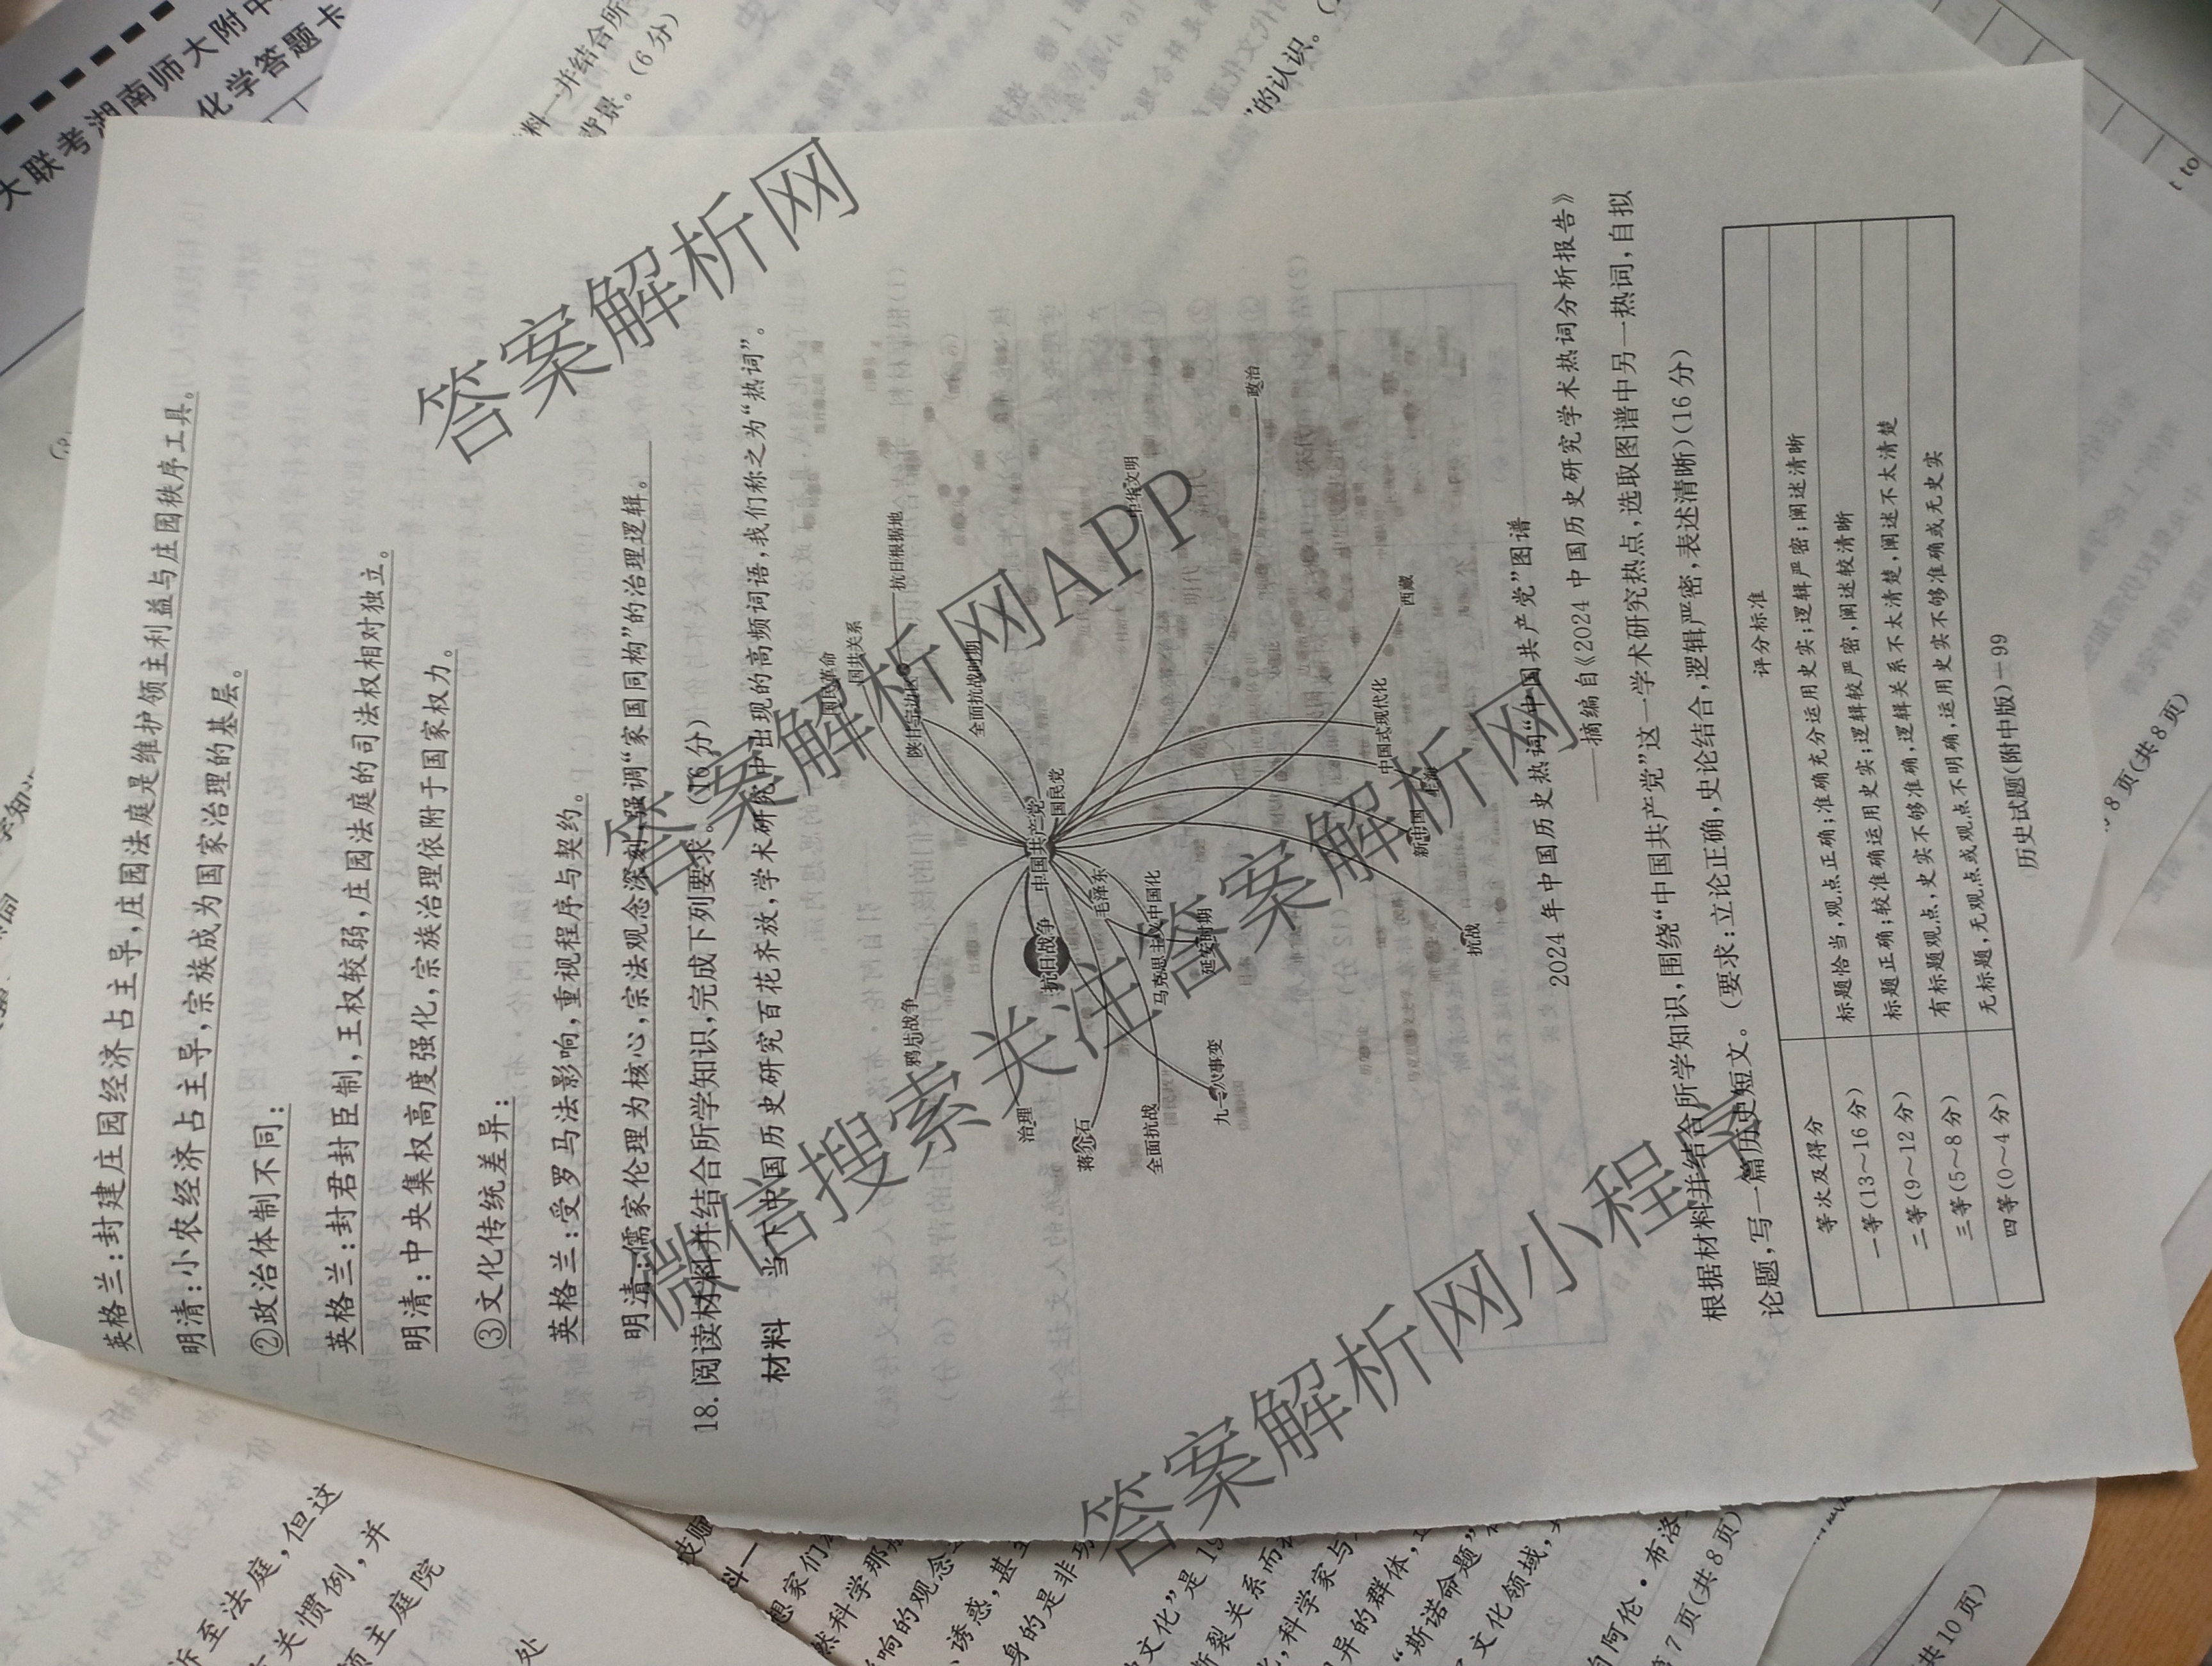 英格兰：封建庄园经济占主导，庄园法庭是维护领主利益与庄园秩序工具。
明清：小农经济占主导，宗族成为国家治理的基层。
②政治体制不同：
英格兰：封君封臣制，王权较弱，庄园法庭的司法权相对独立。
明清：中央集权高度强化，宗族治理依附于国家权力。
③文化传统差异：
英格兰：受罗马法影响，重视程序与契约。
明清：儒家伦理为核心，宗法观念深刻，强调“家国同构”的治理逻辑。
18.阅读材料并结合所学知识，完成下列要求。（16分）
材料　当下中国历史研究百花齐放，学术研究中出现的高频词语，我们称之为“热词”。
国民革命
国共关系
抗日根据地
陕甘宁边区
鸦片战争
全面抗战时期
治理
抗日战争
中国共产党
国民党
蒋介石
毛泽东
中华文明
全面抗战
马克思主义中国化
延安时期
九一八事变
政治
中国式现代化
西藏
新中国
上海
抗战
2024年中国历史热词“中国共产党”图谱
——摘编自《2024中国历史研究学术热词分析报告》
根据材料并结合所学知识，围绕“中国共产党”这一学术研究热点，选取图谱中另一热词，自拟
论题，写一篇历史短文。（要求：立论正确，史论结合，逻辑严密，表述清晰）（16分）
等次及得分　评分标准
一等（13～16分）　标题恰当，观点正确；准确充分运用史实；逻辑严密；阐述清晰
二等（9～12分）　标题正确；较准确运用史实；逻辑较严密，阐述较清晰
三等（5～8分）　有标题观点，史实不够准确，逻辑关系不太清楚，阐述不太清楚
四等（0～4分）　无标题，无观点或观点不明确，运用史实不够准确或无史实
历史试题（附中版）－99
答案解析网
答案解析网APP
微信搜索关注答案解析网
答案解析网小程序
大联考湖南师大附中
化学答题卡
料一并结合所
背景。（6分）
”的认识。
8页（共8页）
诉至法庭，但这
关惯例，并
领主庭院
处
料一
想家们
然科学那
响的观念
诱惑，甚
身的是非
文化”是19
裂关系而
，科学家与
异的群体，
“斯诺命题”
文化领域，
自阿伦·布洛
第7页（共8页）
共10页）
t to